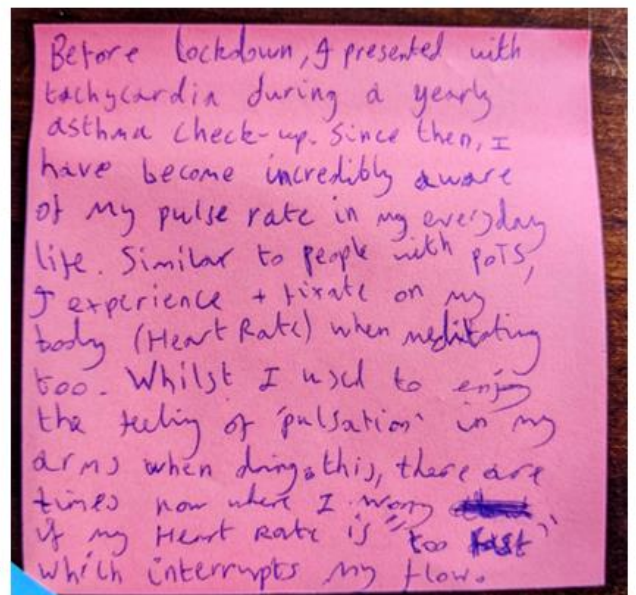 Before lockdown, I presented with
tachycardia during a yearly
asthma check-up. Since then, I
have become incredibly aware
of my pulse rate in my everyday
life. Similar to people with POTS,
I experience + fixate on my
body (Heart Rate) when meditating
too. Whilst I used to enjoy
the feeling of 'pulsation' in my
arms when doing this, there are
times now where I worry
if my Heart Rate is "too fast"
which interrupts my flow.